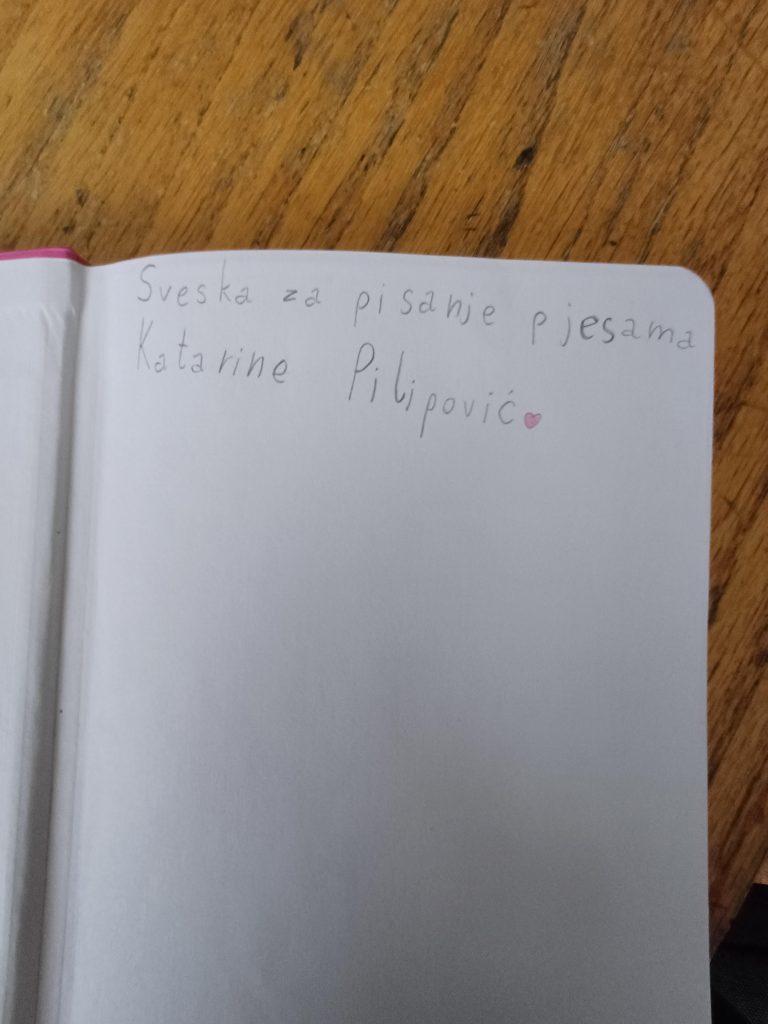 Sveska za pisanje pjesama
Katarine Pilipović